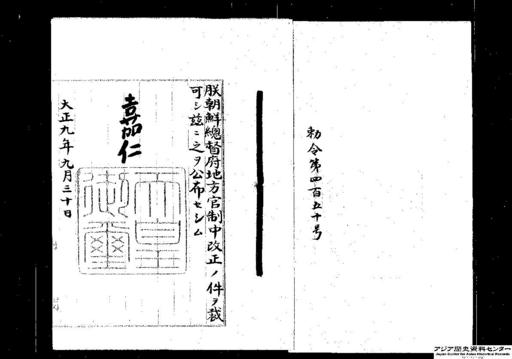 勅令第四百五十号
朕朝鮮總督府地方官制中改正ノ件ヲ裁
可シ茲ニ之ヲ公布セシム
嘉仁
天皇御璽
大正九年九月三十日
アジア歴史資料センター
Japan Center for Asian Historical Records